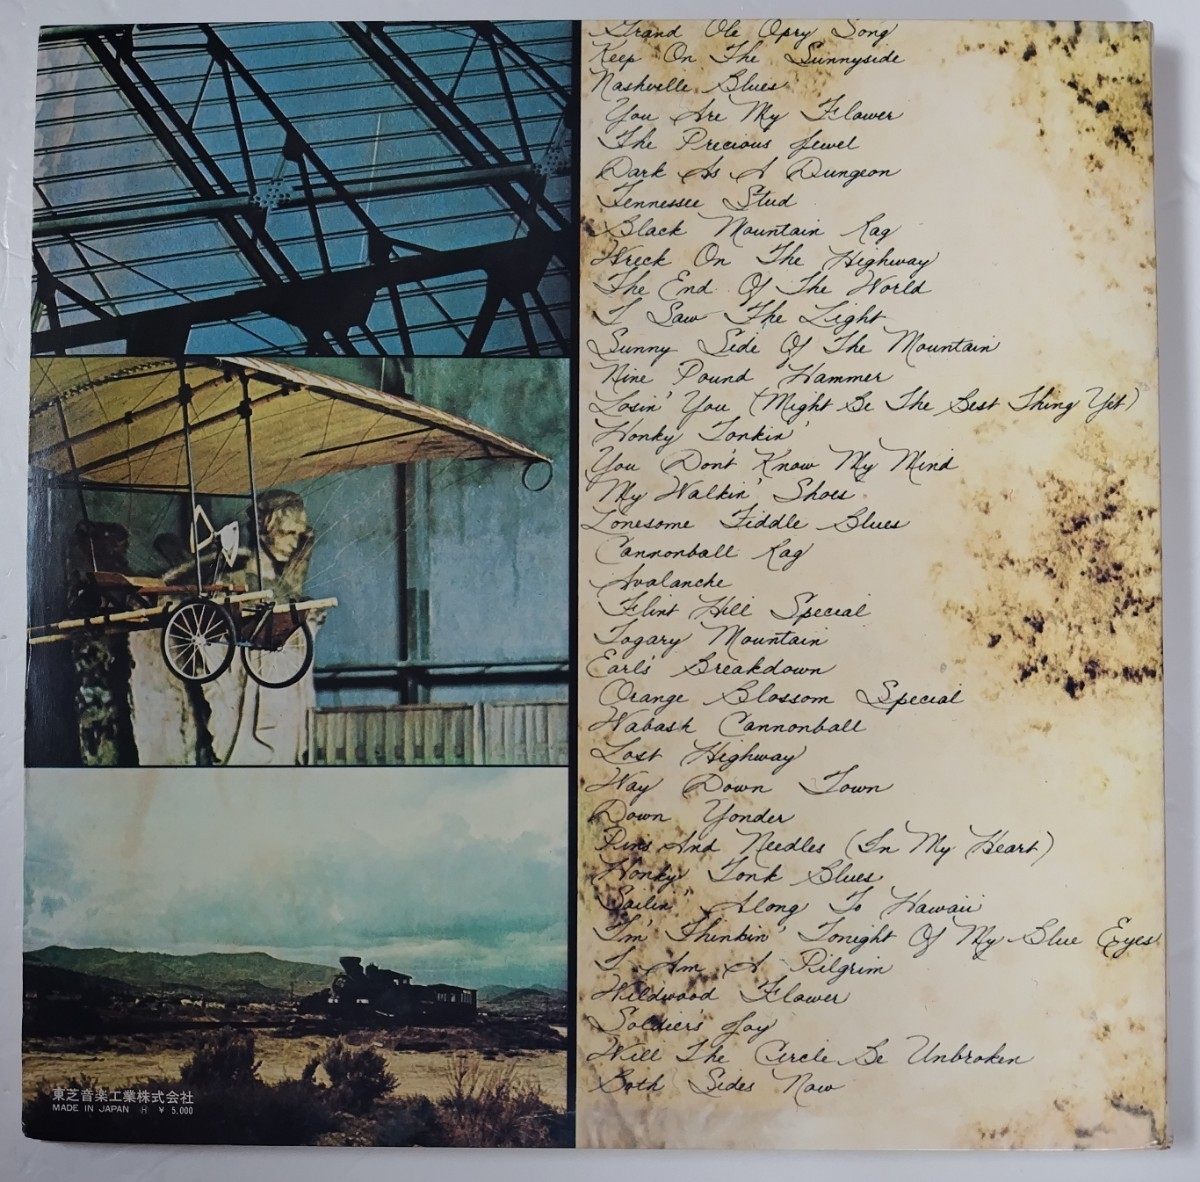 Grand Ole Opry Song
Keep On The Sunnyside
Nashville Blues
You Are My Flower
The Precious Jewel
Dark As A Dungeon
Tennessee Stud
Black Mountain Rag
Wreck On The Highway
The End Of The World
I Saw The Light
Sunny Side Of The Mountain
Nine Pound Hammer
Losin' You (Might Be The Best Thing Yet)
Honky Tonkin'
You Don't Know My Mind
My Walkin' Shoes
Lonesome Fiddle Blues
Cannonball Rag
Avalanche
Flint Hill Special
Togary Mountain
Earl's Breakdown
Orange Blossom Special
Wabash Cannonball
Lost Highway
Way Down Town
Down Yonder
Pins And Needles (In My Heart)
Honky Tonk Blues
Sailin' Along To Hawaii
I'm Thinkin' Tonight Of My Blue Eyes
I Am A Pilgrim
Wildwood Flower
Soldiers Joy
Will The Circle Be Unbroken
Both Sides Now
東芝音楽工業株式会社
MADE IN JAPAN Ⓗ ¥ 5,000